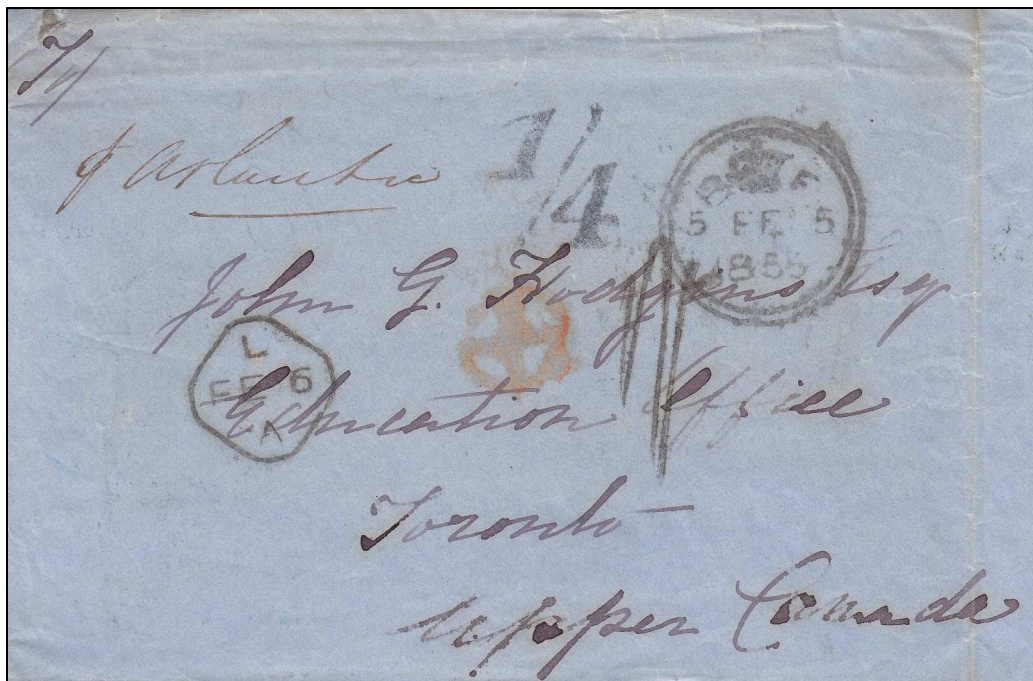 p Atlantic
1/4
5 FE 5
1855
John G. Hodgins Esq
L
FE 6
A
Education Office
Toronto
Upper Canada